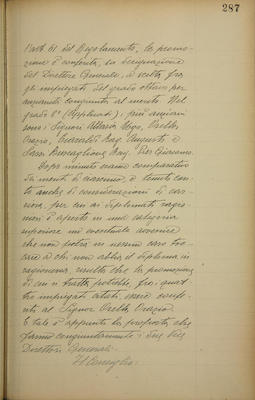 287
l'art. 61 del Regolamento, la promo-
zione è conferita, su designazione
del Direttore Generale, a scelta, fra
gli impiegati del grado
anzianità congiunta al merito. Nel
grado 8° (Applicati), più anziani
sono i Signori Ugo, Orello
Orazio, Rag. Augusto e
Rag. Pier Giacomo.
Dopo minuto esame comparativo
dei meriti di ciascuno, e tenuto con-
to anche di considerazioni di car-
riera, per cui ai diplomati ragio-
nieri è aperta in una categoria
superiore un eventuale avvenire
che non potrà in nessun caso toc-
care a chi non abbia il diploma in
ragioneria, risulta che la promozione
di cui si tratta potrebbe, fra i quat-
tro impiegati citati, essere confe-
rita al Signor Orello Orazio.
E tale è appunto la proposta che
fanno congiuntamente i due Vice
Direttori Generali.
Il Consiglio.